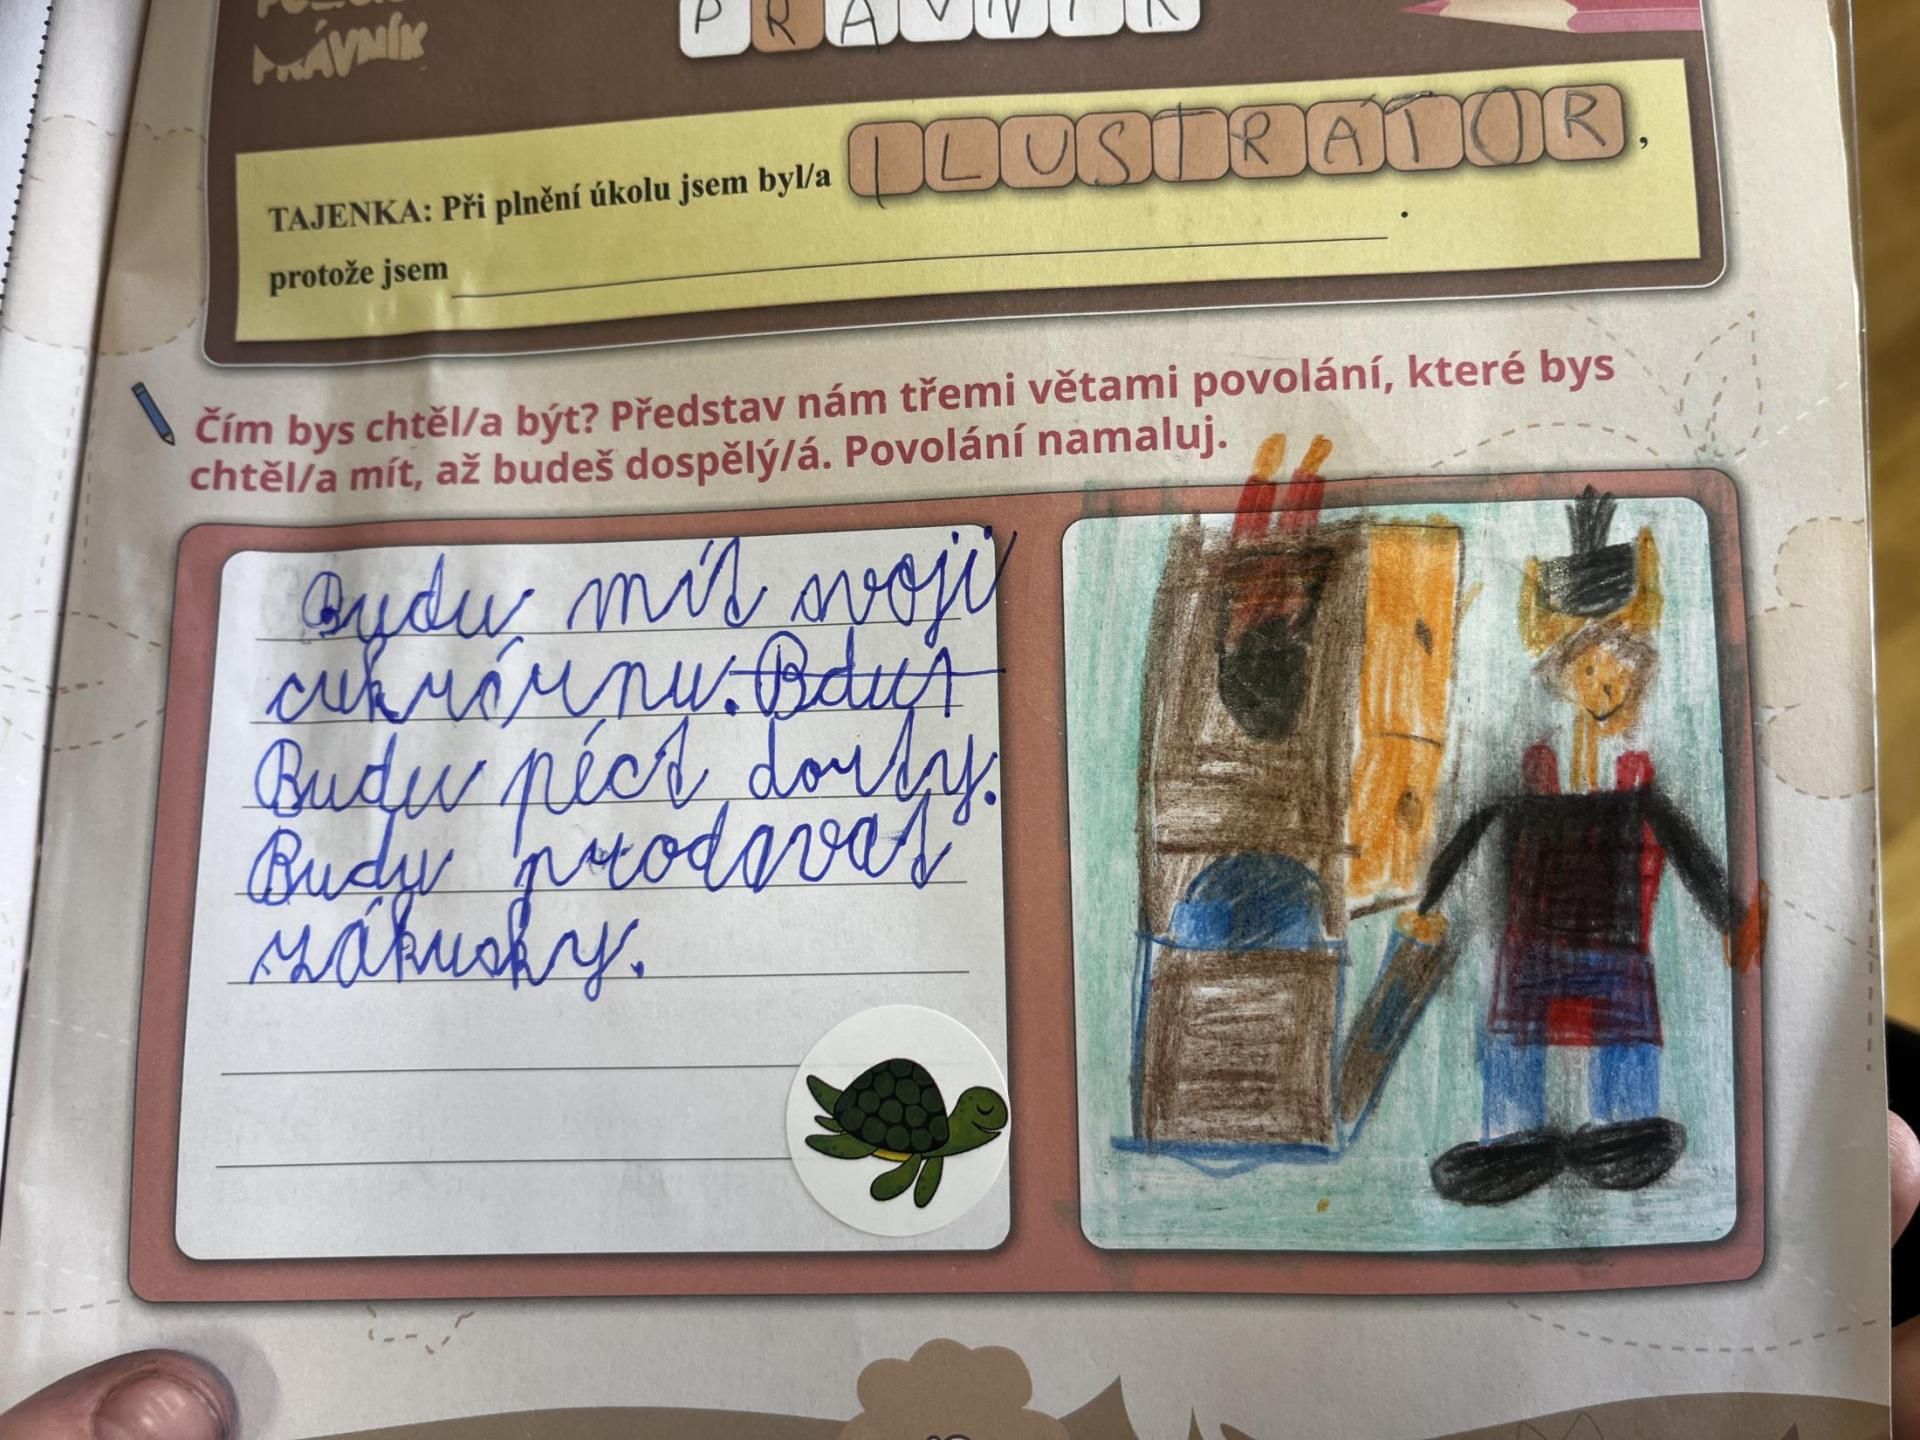 PRÁVNÍK
PRÁVNÍK
TAJENKA: Při plnění úkolu jsem byl/a ILUSTRÁTOR,
protože jsem .
Čím bys chtěl/a být? Představ nám třemi větami povolání, které bys
chtěl/a mít, až budeš dospělý/á. Povolání namaluj.
Budu mít svoji
cukrárnu. Bdut
Budu péct dorty.
Budu prodavat
zákusky.